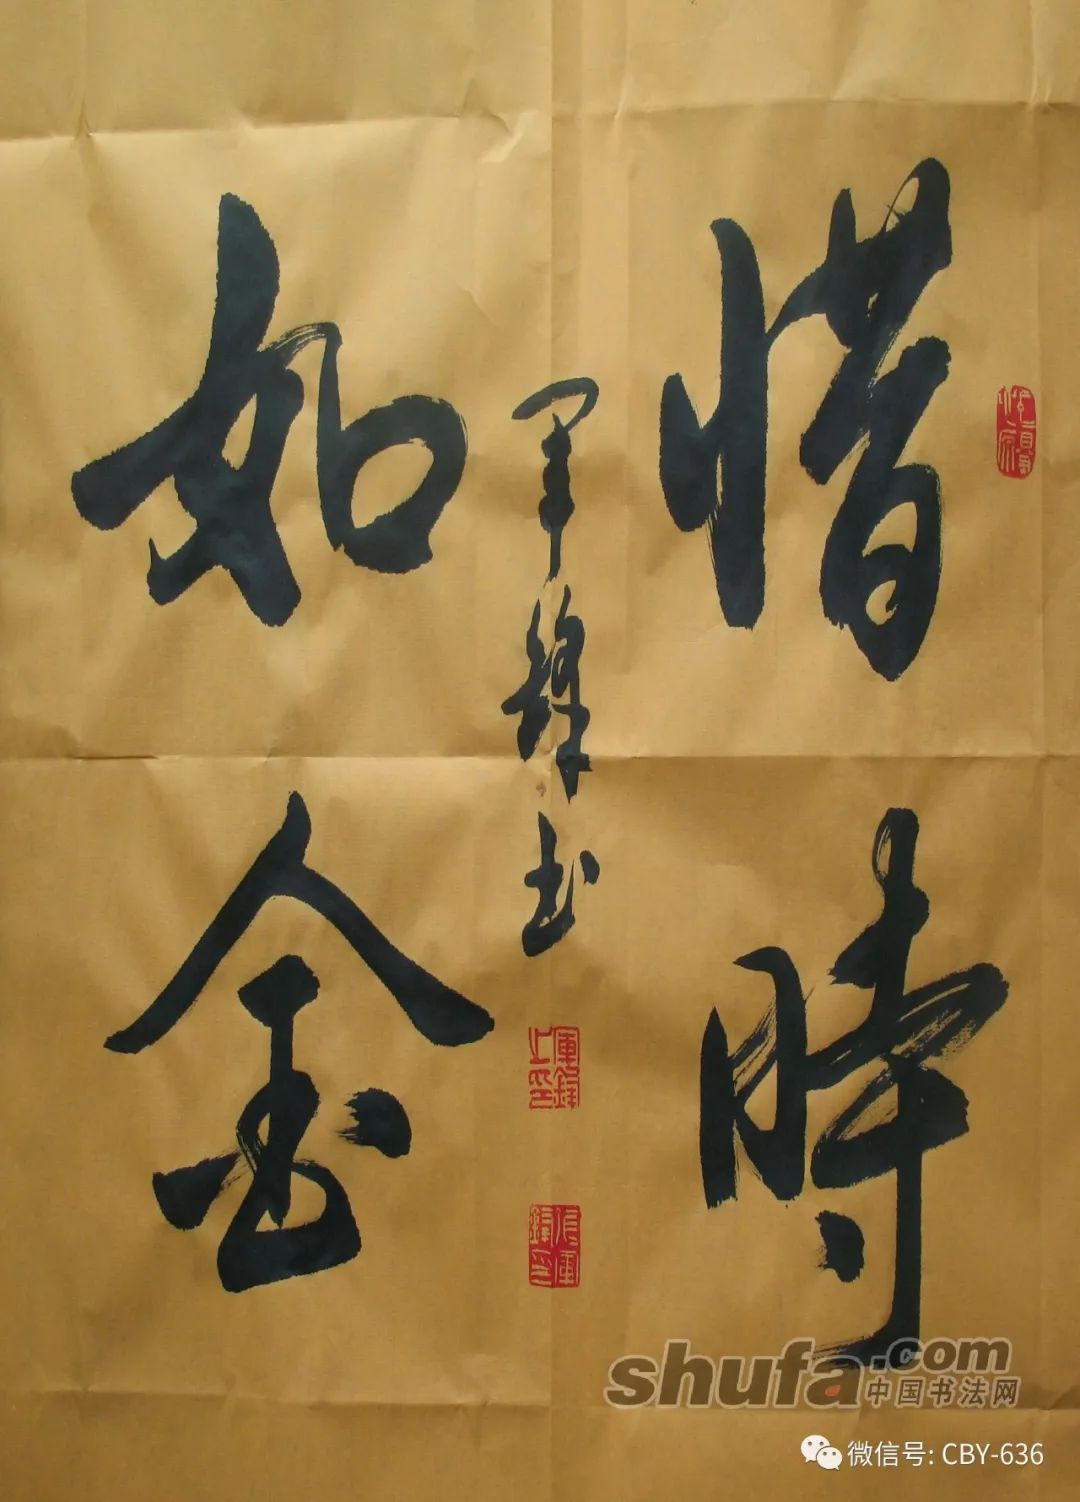 惜時
如金
軍鋒书
shufa.com
中国书法网
微信号: CBY-636